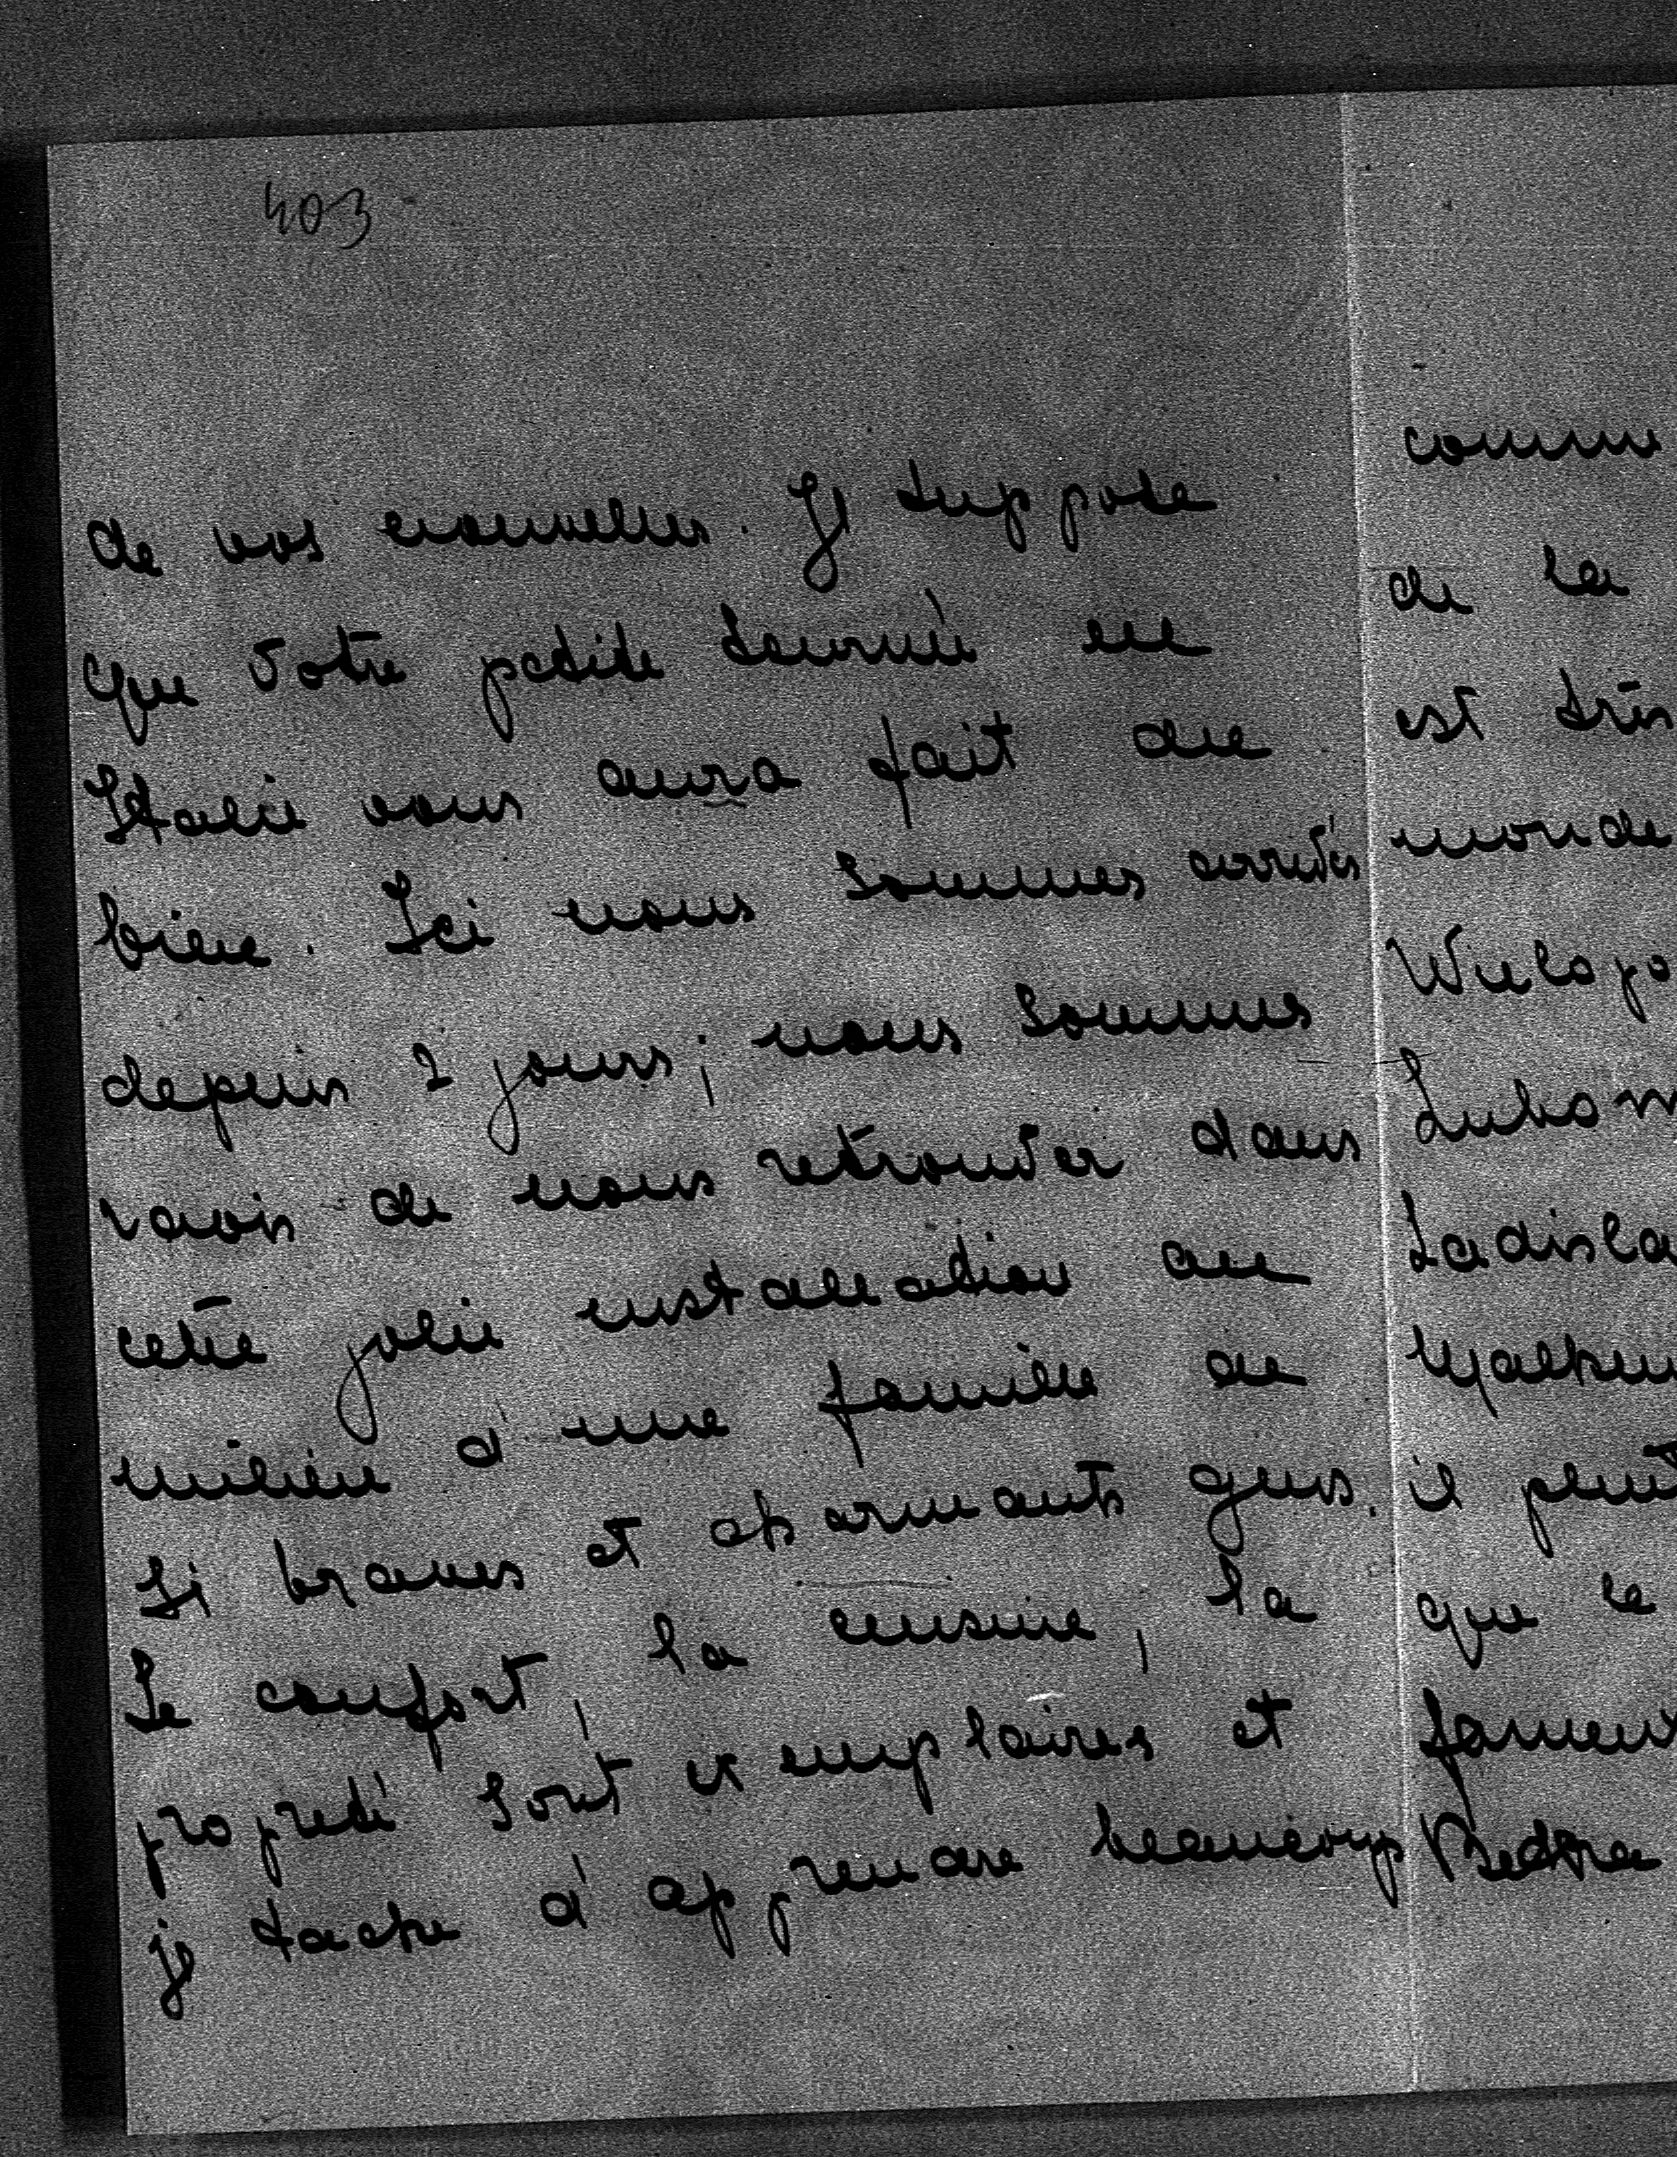 403
de vos nouvelles. Je suppose
que votre petite tournée en
Italie vous aura fait du
bien. Ici nous sommes arrivés
depuis 2 jours; nous sommes
ravis de nous retrouver dans
cette jolie installation au
milieu d'une famille de
si braves et charmants gens.
Le confort, la cuisine, la
propreté sont exemplaires et
je tache d'apprendre beaucoup
comme
de la
est très
monde
Wielopo
Lubom
Ladisla
il pleut
que le
fameux